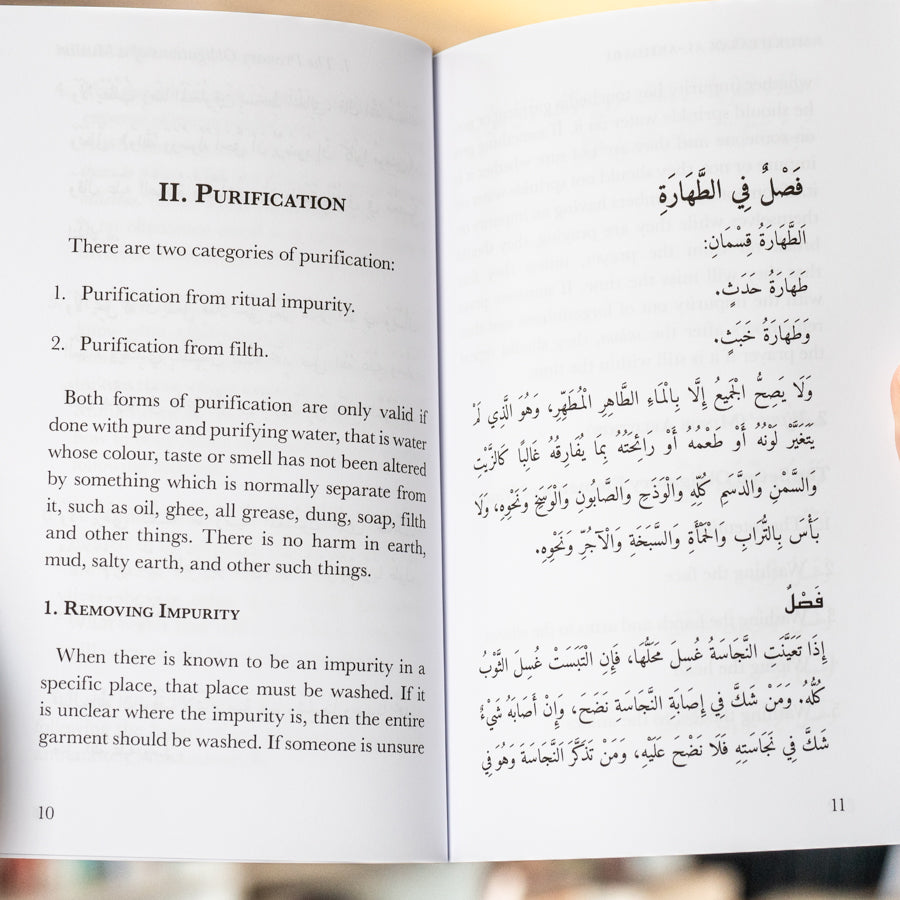 II. PURIFICATION
There are two categories of purification:
1. Purification from ritual impurity.
2. Purification from filth.
Both forms of purification are only valid if
done with pure and purifying water, that is water
whose colour, taste or smell has not been altered
by something which is normally separate from
it, such as oil, ghee, all grease, dung, soap, filth
and other things. There is no harm in earth,
mud, salty earth, and other such things.
1. REMOVING IMPURITY
When there is known to be an impurity in a
specific place, that place must be washed. If it
is unclear where the impurity is, then the entire
garment should be washed. If someone is unsure
10
فَصْلٌ فِي الطَّهَارَةِ
اَلطَّهَارَةُ قِسْمَانِ:
طَهَارَةُ حَدَثٍ.
وَطَهَارَةُ خَبَثٍ.
وَلَا يَصِحُّ الْجَمِيعُ إِلَّا بِالْمَاءِ الطَّاهِرِ الْمُطَهِّرِ، وَهُوَ الَّذِي لَمْ
يَتَغَيَّرْ لَوْنُهُ أَوْ طَعْمُهُ أَوْ رَائِحَتُهُ بِمَا يُفَارِقُهُ غَالِبًا كَالزَّيْتِ
وَالسَّمْنِ وَالدَّسَمِ كُلِّهِ وَالْوَذَحِ وَالصَّابُونِ وَالْوَسَخِ وَنَحْوِهِ، وَلَا
بَأْسَ بِالتُّرَابِ وَالْحَمْأَةِ وَالسَّبَخَةِ وَالْآجُرِّ وَنَحْوِهِ.
فَصْلٌ
إِذَا تَعَيَّنَتِ النَّجَاسَةُ غُسِلَ مَحَلُّهَا، فَإِنِ الْتَبَسَتْ غُسِلَ الثَّوْبُ
كُلُّهُ. وَمَنْ شَكَّ فِي إِصَابَةِ النَّجَاسَةِ نَضَحَ، وَإِنْ أَصَابَهُ شَيْءٌ
شَكَّ فِي نَجَاسَتِهِ فَلَا نَضْحَ عَلَيْهِ، وَمَنْ تَذَكَّرَ النَّجَاسَةَ وَهُوَ فِي
11